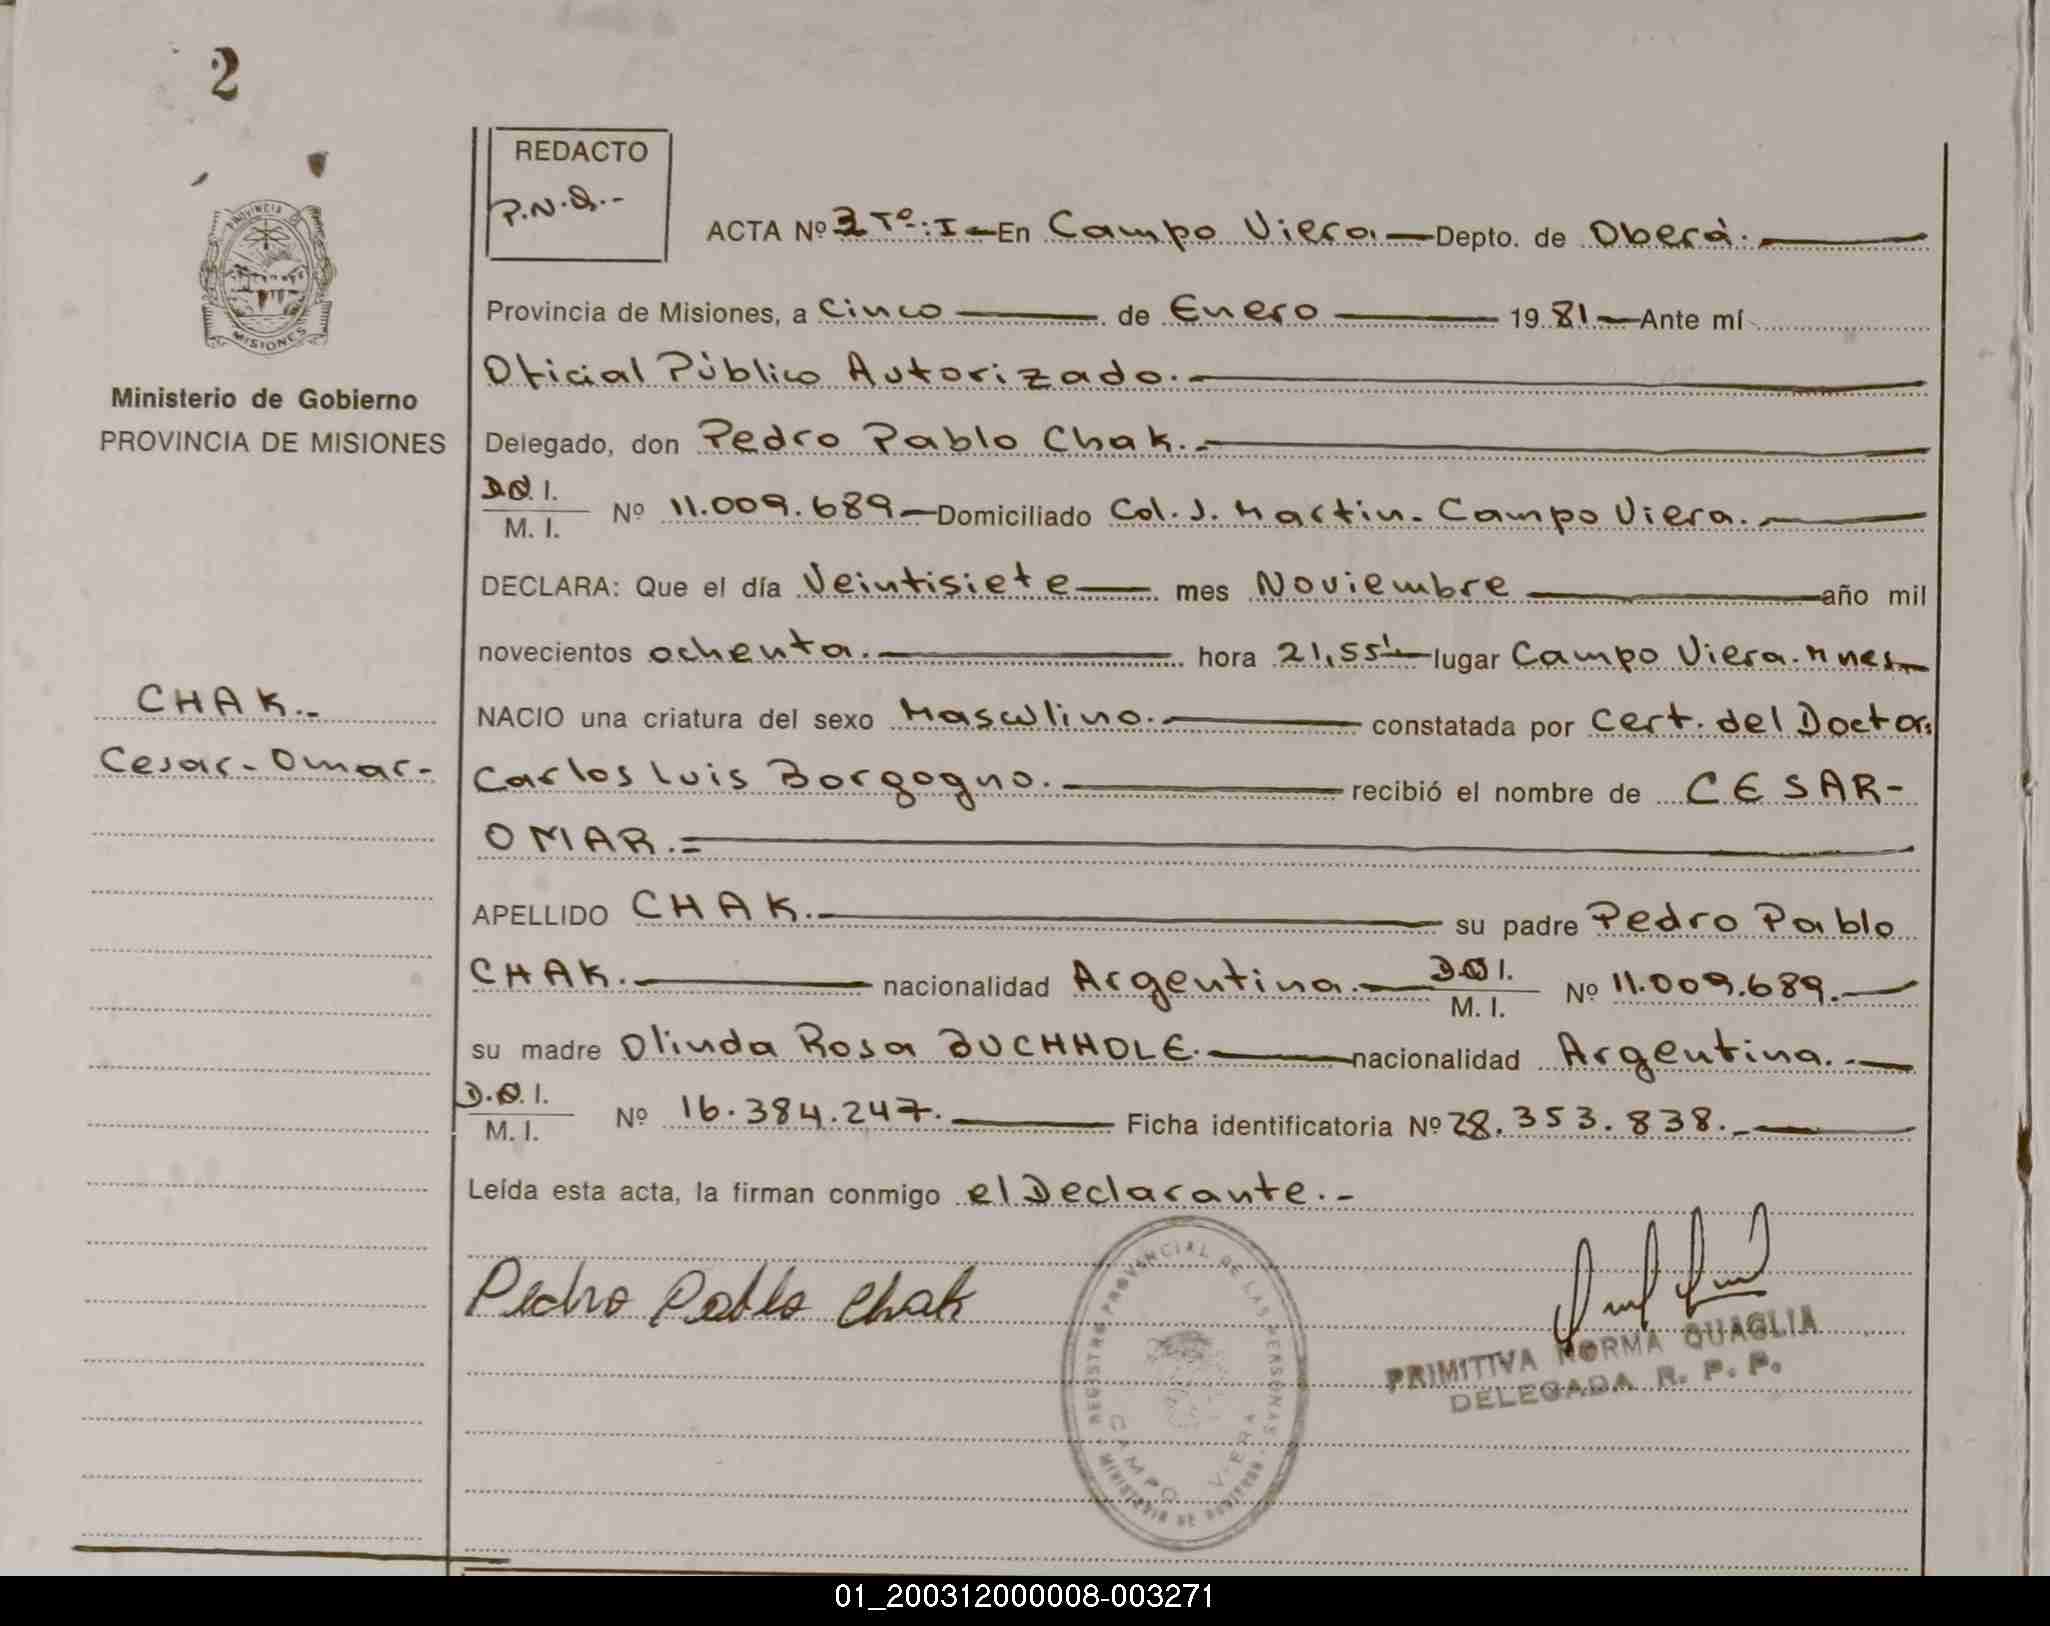 2
REDACTO
P.N.Q.-
ACTA Nº 2 Tº: I - En Campo Viera. Depto. de Oberá.
PROVINCIA DE
MISIONES
Provincia de Misiones, a Cinco de Enero 1981 Ante mí
Oficial Público Autorizado.
Ministerio de Gobierno
PROVINCIA DE MISIONES
Delegado, don Pedro Pablo Chak.
D.N.I.
M. I. Nº 11.009.689 Domiciliado Col. J. Martin. Campo Viera.
DECLARA: Que el día Veintisiete mes Noviembre año mil
novecientos ochenta. hora 21,55 lugar Campo Viera. Mnes
CHAK.-
NACIO una criatura del sexo Masculino. constatada por Cert. del Doctor
Cesar - Omar -
Carlos Luis Borgogno. recibió el nombre de CESAR-
OMAR.=
APELLIDO CHAK. su padre Pedro Pablo
CHAK. nacionalidad Argentina. D.N.I.
M. I. Nº 11.009.689.
su madre Olinda Rosa BUCHHOLE. nacionalidad Argentina.
D.N.I.
M. I. Nº 16.384.247. Ficha identificatoria Nº 28.353.838.
Leída esta acta, la firman conmigo el Declarante.-
Pedro Pablo Chak
REGISTRO PROVINCIAL DE LAS PERSONAS
CAMPO VIERA
MINISTERIO DE GOBIERNO
PRIMITIVA NORMA QUAGLIA
DELEGADA R. P. P.
01_200312000008-003271